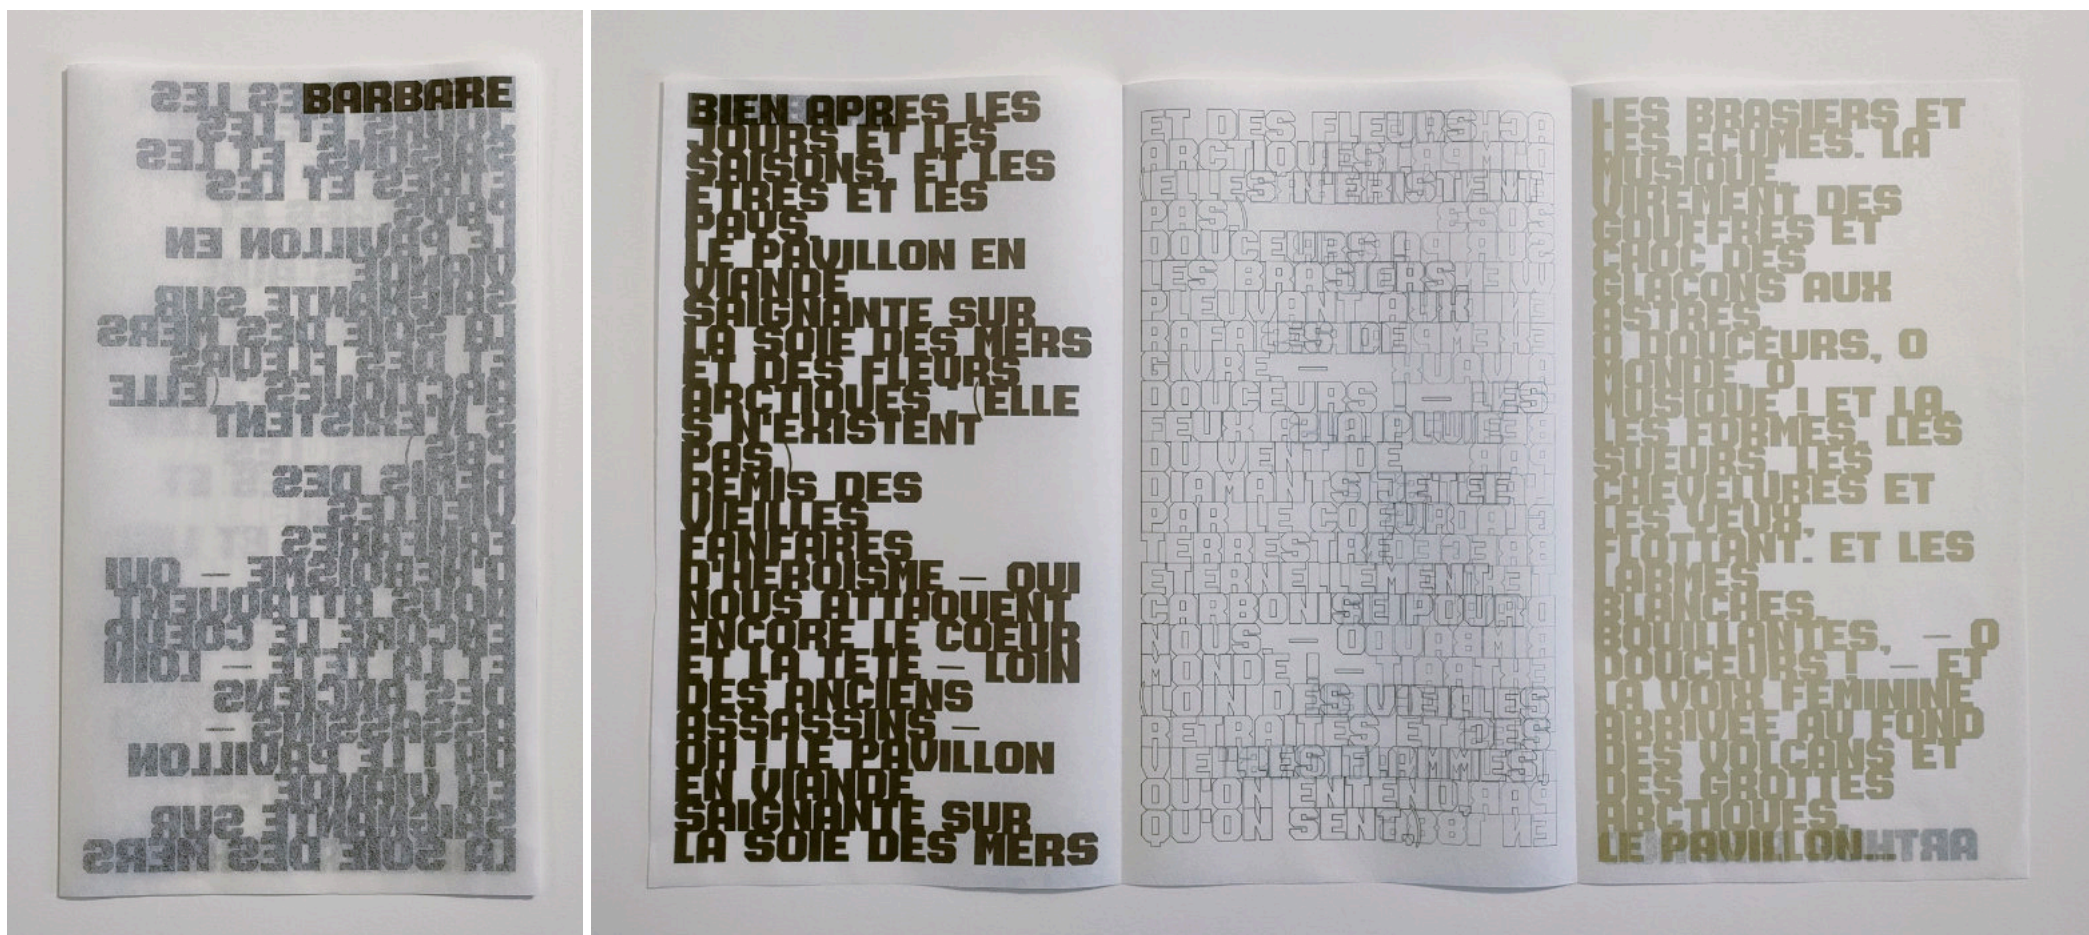 BARBARE
BIEN APRES LES
JOURS ET LES
SAISONS, ET LES
ETRES ET LES
PAYS,
LE PAVILLON EN
VIANDE
SAIGNANTE SUR
LA SOIE DES MERS
ET DES FLEURS
ARCTIQUES, (ELLE
S N'EXISTENT
PAS.)
REMIS DES
VIEILLES
FANFARES
D'HEROISME — QUI
NOUS ATTAQUENT
ENCORE LE COEUR
ET LA TETE — LOIN
DES ANCIENS
ASSASSINS —
OH ! LE PAVILLON
EN VIANDE
SAIGNANTE SUR
LA SOIE DES MERS
ET DES FLEURS
ARCTIQUES,
(ELLES N'EXISTENT
PAS.)
DOUCEURS !
LES BRASIERS,
PLEUVANT AUX
RAFALES DE
GIVRE —
DOUCEURS ! — LES
FEUX A LA PLUIE
DU VENT DE
DIAMANTS JETEE
PAR LE COEUR
TERRESTRE
ETERNELLEMENT
CARBONISE POUR
NOUS. — O
MONDE ! —
(LOIN DES VIEILLES
RETRAITES ET DES
VIEILLES FLAMMES,
QU'ON ENTEND,
QU'ON SENT,)
LES BRASIERS ET
LES ECUMES. LA
MUSIQUE,
VIREMENT DES
GOUFFRES ET
CHOC DES
GLACONS AUX
ASTRES.
O DOUCEURS, O
MONDE, O
MUSIQUE ! ET LA,
LES FORMES, LES
SUEURS, LES
CHEVELURES ET
LES YEUX,
FLOTTANT. ET LES
LARMES
BLANCHES,
BOUILLANTES, — O
DOUCEURS ! — ET
LA VOIX FEMININE
ARRIVEE AU FOND
DES VOLCANS ET
DES GROTTES
ARCTIQUES.
LE PAVILLON...